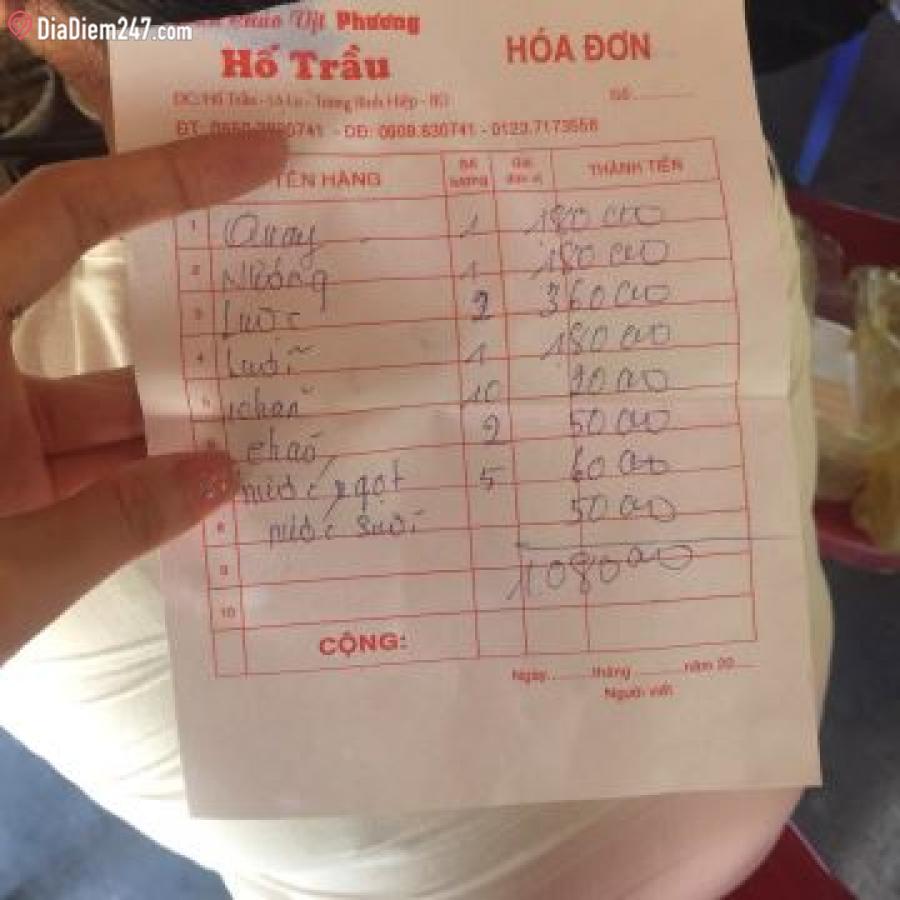 DiaDiem247.com
Cháo Vịt Phương
Hố Trầu
HÓA ĐƠN
Số:
ĐC: Hố Trầu - Hiệp -
ĐT: - DĐ: 0908.830741 - 0123.7173558
TÊN HÀNG Số lượng Giá đơn vị THÀNH TIỀN
1 Quay 1 180 000
2 Nướng 1 180 000
3 Luộc 2 360 000
4 Lưỡi 1 180 000
5 10 20 000
6 cháo 2 50 000
nước ngọt 5 60 000
8 nước suối 50 000
9 1 080 000
10
CỘNG:
Ngày tháng năm 20
Người viết